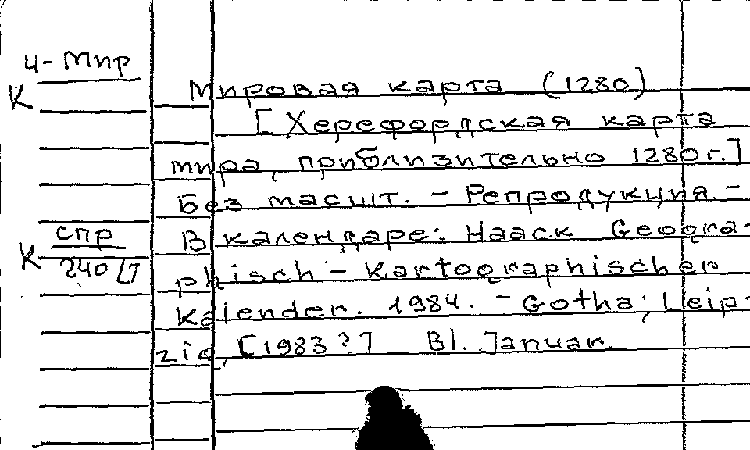 4-Мир
К
Мировая карта (1280)
[Херефордская карта
мира, приблизительно 1280г.]
Без масшт. - Репродукция -
К спр
240 LT
В календаре: Haack Geogra-
phisch-Kartographischer
Kalender. 1984. - Gotha; Leip-
zig, [1983?] Bl. Januar.